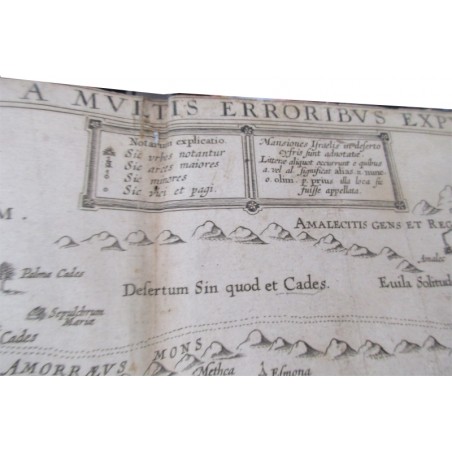 A MVLTIS ERRORIBVS EXP
Notarum explicatio.
Sic vrbes notantur
Sic arces maiores
Sic minores
Sic vici et pagi.
Mansiones Israelis in deserto
cyfris sunt adnotatæ
Litteræ aliquot occurrunt e quibus
a. vel al. significat alias. n. nunc
o. olim. p. prius illa loca sic
fuisse appellata.
M.
AMALECITIS GENS ET REG
Amalec
Palmæ Cades
Desertum Sin quod et Cades.
Euila Solitud
Sepulchrum
Mariæ
Cades
MONS
AMORRÆVS
Methca
Esmona